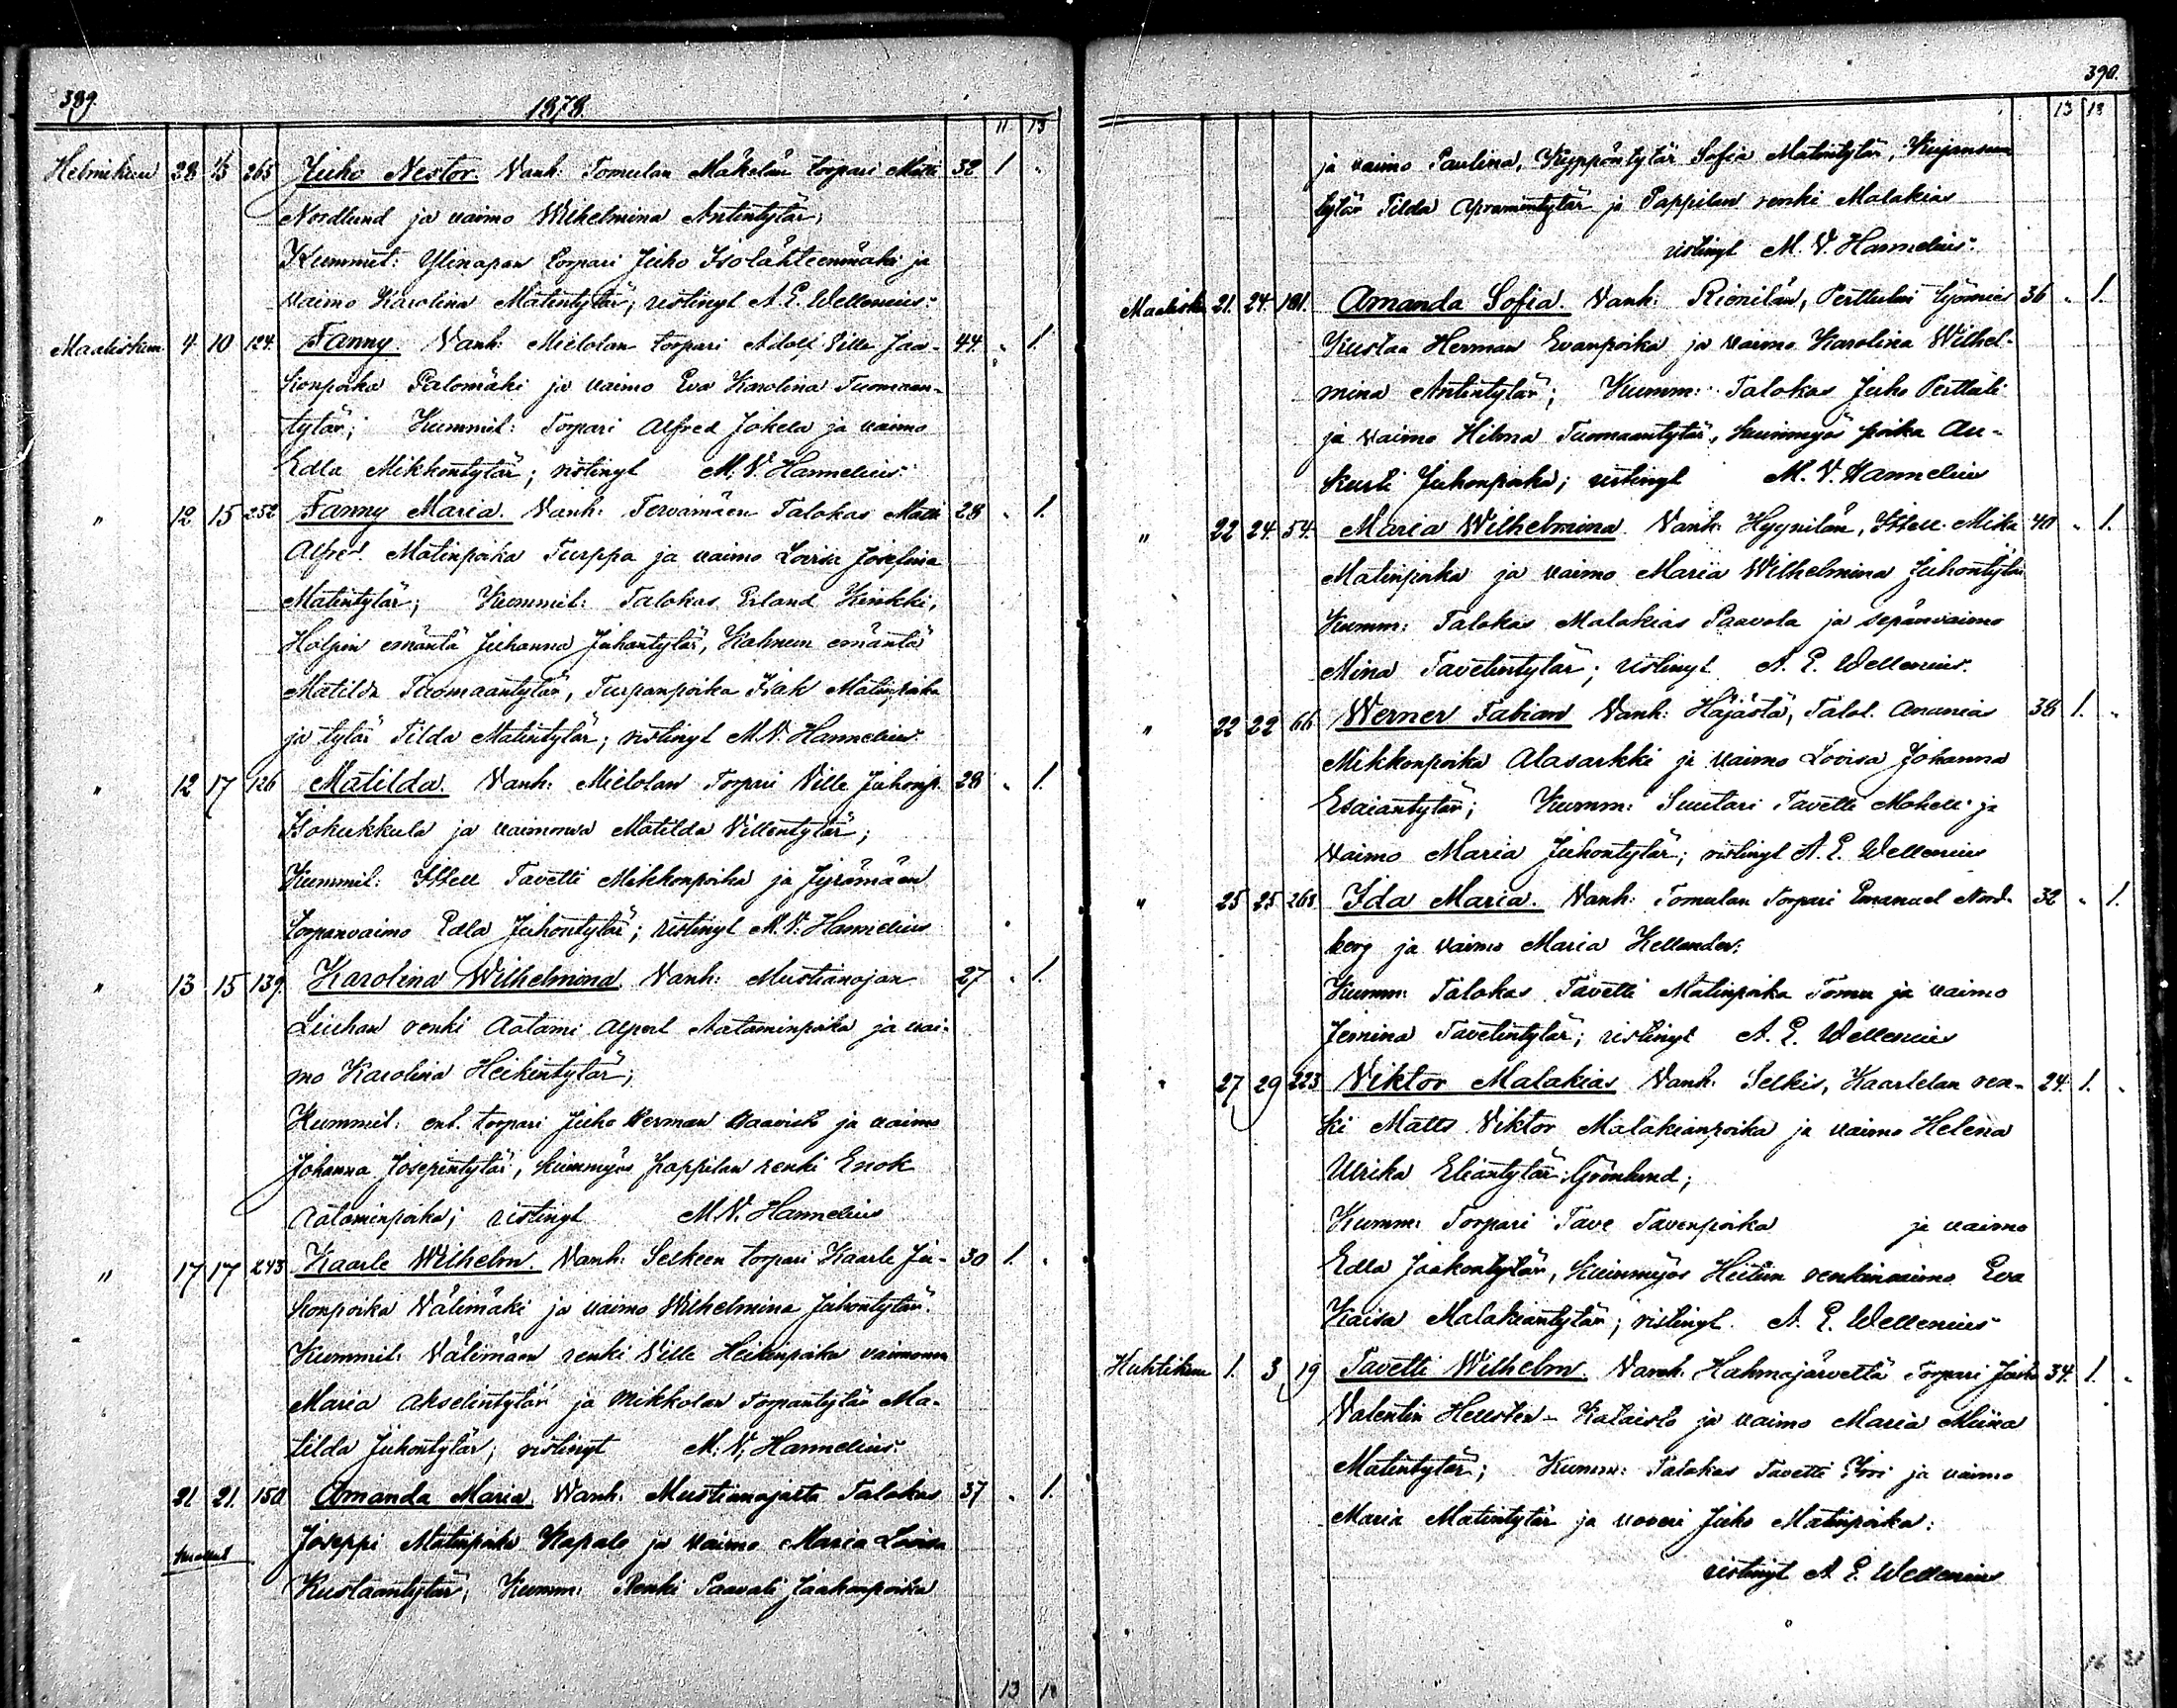 389.
1878.
11 13
Helmikuu 28 1/3 265 Juho Nestor. Vanh: Tomulan Mäkelän torpari Matti 32 1 "
Nordlund ja vaimo Wilhelmina Antintytär;
Kummit: Ylinapan torpari Juho Isolähteenmäki ja
vaimo Karolina Matintytär; ristinyt A. E. Wellenius.
Maaliskuu 4 10 124. Fanny. Vanh: Mielolan torpari Adolf Ville Jaa- 44. " 1.
konpoika Palomäki ja vaimo Eva Karolina Tuomaan-
tytär; Kummit: Torpari Alfred Jokela ja vaimo
Edla Mikkontytär; ristinyt M. V. Hannelius.
" 12 15 252 Fanny Maria. Vanh: Tervamäen Talokas Matti 28 " 1.
Alfred Matinpoika Turppa ja vaimo Lovisa Josefina
Matintytär; Kummit: Talokas Erland Kinkki,
Holpin emäntä Juhanna Juhontytär, Kahnun emäntä
Matilda Tuomaantytär, Turpanpoika Isak Matinpoika
ja tytär Tilda Matintytär; ristinyt M. V. Hannelius.
" 12 17 126 Matilda. Vanh: Mielolan Torpari Ville Juhonp. 28 " 1.
Isokukkula ja vaimonsa Matilda Villentytär;
Kummit: Itsell Tavetti Mikkonpoika ja Jyrämäen
torpanvaimo Edla Juhontytär; ristinyt M. V. Hannelius
" 13 15 139. Karolina Wilhelmina. Vanh: Mustianojan 27 " 1.
Liuhan renki Aatami Alpert Aataminpoika ja vai-
mo Karolina Heikintytär;
Kummit: ent. torpari Juho Herman Haavisto ja vaimo
Johanna Josepintytär, kuinmyös pappilan renki Enok
Aataminpoika; ristinyt M. V. Hannelius
" 17 17 243 Kaarle Wilhelm. Vanh: Selkeen torpari Kaarle Ja- 30 1. "
konpoika Välimäki ja vaimo Wilhelmina Juhontytär.
Kummit: Välimäen renki Ville Heikinpoika vaimonsa
Maria Akselintytär ja Mikkolan Torpantytär Ma-
tilda Juhontytär; ristinyt M. V. Hannelius.
21 21. 150 Amanda Maria. Vanh. Mustianojasta Talokas 37 " 1.
Joseppi Matinpoika Kapalo ja vaimo Maria Lovisa
Kustaantytär; Kumm: Renki Paavali Jaakonpoika
13 18
390.
13 18
ja vaimo Paulina, Kyppöntytär Sofia Matintytär, Kujansuun
tytär Tilda Apramintytär ja Pappilan renki Malakias
ristinyt M. V. Hannelius.
Maalisku 21. 24. 181. Amanda Sofia. Vanh: Rienilän, Perttulin työmies 36 " 1.
Kustaa Herman Evanpoika ja vaimo Karolina Wilhel-
mina Antintytär; Kumm: Talokas Juho Perttuli
ja vaimo Hilma Tuomaantytär, kuinmyös poika Au-
kusti Juhonpoika; ristinyt M. V. Hannelius
" 22 24. 54. Maria Wilhelmina. Vanh: Hyynilän, Itsell. Mikki 40 " 1.
Matinpoika ja vaimo Maria Wilhelmina Juhontytär
Kumm: Talokas Malakias Paavola ja sepänvaimo
Mina Tavetintytär; ristinyt A. E. Wellenius.
" 22 22 66 Werner Fabian Vanh: Häjästä, Talol. Ananias 38 1. "
Mikkonpoika Alasarkki ja vaimo Lovisa Johanna
Esaiantytär; Kumm: Suutari Tavetti Mohell ja
vaimo Maria Juhontytär; ristinyt A. E. Wellenius
" 25 25 268 Ida Maria. Vanh: Tomulan Torpari Emanuel Nord- 32 " 1.
berg ja vaimo Maria Kellander.
Kumm: Talokas Tavetti Matinpoika Tomu ja vaimo
Jemina Tavetintytär; ristinyt A. E. Wellenius
" 27 29 223 Viktor Malakias Vanh: Selkis, Kaarlelan ren- 24. 1. "
ki Matts Viktor Malakianpoika ja vaimo Helena
Ulrika Eliantytär Grönlund;
Kumm: Torpari Tave Tavenpoika ja vaimo
Edla Jaakontytär, Kuinmyös Heitun renkinvaimo Eva
Kaisa Malakiantytär; ristinyt A. E. Wellenius
Huhtikuu 1. 3 19 Tavetti Wilhelm. Vanh: Hahmajärveltä Torpari Juho 34. 1. "
Valentin Hellsten-Kataisto ja vaimo Maria Miina
Matintytär; Kumm: Talokas Tavetti Issi ja vaimo
Maria Matintytär ja vooveri Juho Matinpoika:
ristinyt A. E. Wellenius
16 21